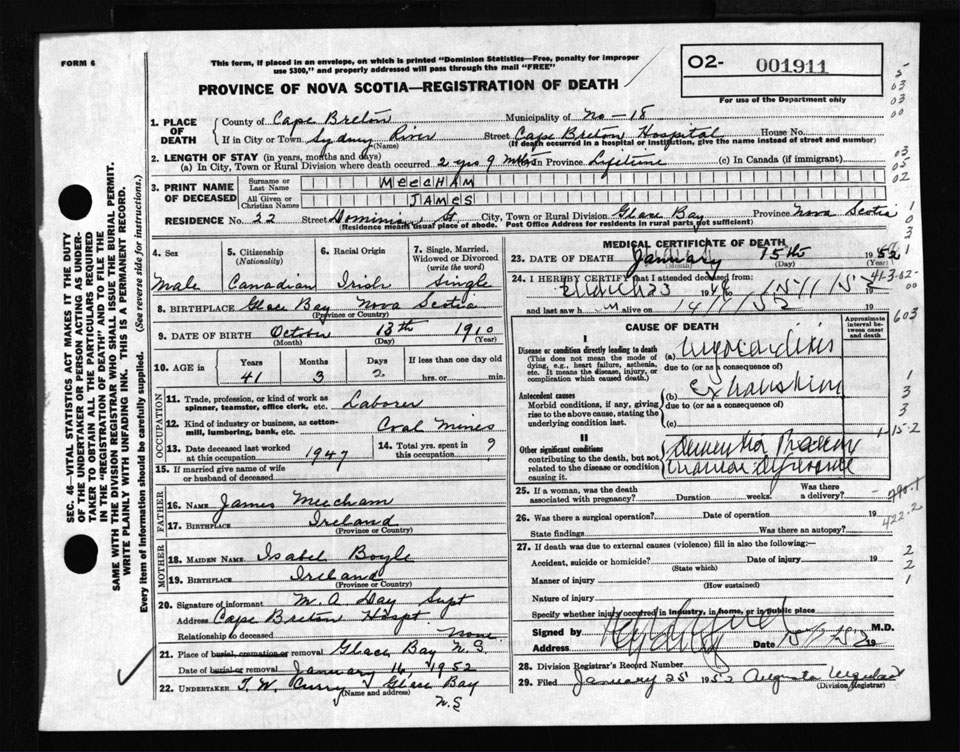 FORM 6
This form, if placed in an envelope, on which is printed "Dominion Statistics—Free, penalty for improper
use $300," and properly addressed will pass through the mail "FREE"
PROVINCE OF NOVA SCOTIA—REGISTRATION OF DEATH
02- 001911
For use of the Department only
SEC. 46—VITAL STATISTICS ACT MAKES IT THE DUTY
OF THE UNDERTAKER OR PERSON ACTING AS UNDER-
TAKER TO OBTAIN ALL THE PARTICULARS REQUIRED
IN THE "REGISTRATION OF DEATH" AND TO FILE THE
SAME WITH THE DIVISION REGISTRAR WHO SHALL ISSUE THE BURIAL PERMIT.
WRITE PLAINLY WITH UNFADING INK. THIS IS A PERMANENT RECORD.
Every item of Information should be carefully supplied. (See reverse side for instructions.)
1. PLACE OF DEATH
County of Cape Breton Municipality of No-18
If in City or Town Sydney River Street Cape Breton Hospital House No.
(Name) (If death occurred in a hospital or institution, give the name instead of street and number)
2. LENGTH OF STAY (in years, months and days)
(a) In City, Town or Rural Division where death occurred 2 yrs 9 mths (b) in Province Lifetime (c) In Canada (if immigrant)
3. PRINT NAME OF DECEASED
Surname or Last Name MEECHAM
All Given or Christian Names JAMES
RESIDENCE No. 22 Street Dominion St. City, Town or Rural Division Glace Bay Province Nova Scotia
(Residence means usual place of abode. Post Office Address for residents in rural parts not sufficient)
4. Sex
Male
5. Citizenship
(Nationality)
Canadian
6. Racial Origin
Irish
7. Single, Married, Widowed or Divorced
(write the word)
Single
8. BIRTHPLACE Glace Bay Nova Scotia
(Province or Country)
9. DATE OF BIRTH October 13th 1910
(Month) (Day) (Year)
10. AGE in Years Months Days If less than one day old
41 3 2 hrs. or min.
OCCUPATION
11. Trade, profession, or kind of work as
spinner, teamster, office clerk, etc. Laborer
12. Kind of industry or business, as cotton-
mill, lumbering, bank, etc. Coal Mines
13. Date deceased last worked
at this occupation 1947
14. Total yrs. spent in
this occupation 9
15. If married give name of wife
or husband of deceased
FATHER
16. NAME James Meecham
17. BIRTHPLACE Ireland
(Province or Country)
MOTHER
18. MAIDEN NAME Isabel Boyle
19. BIRTHPLACE Ireland
(Province or Country)
20. Signature of informant M. A. Day Supt
Address Cape Breton Hospt.
Relationship to deceased None
21. Place of burial, cremation or removal Glace Bay N.S.
Date of burial or removal January 16 1952
22. UNDERTAKER T. W. Curry Glace Bay
(Name and address) N.S
MEDICAL CERTIFICATE OF DEATH
23. DATE OF DEATH January 15th 1952
(Month) (Day) (Year)
24. I HEREBY CERTIFY that I attended deceased from:
and last saw h alive on 14/1/52 19
CAUSE OF DEATH
Approximate interval between onset and death
I
Disease or condition directly leading to death
(This does not mean the mode of
dying, e.g., heart failure, asthenia,
etc. It means the disease, injury, or
complication which caused death.)
(a) Myocarditis
due to (or as a consequence of)
Antecedent causes
Morbid conditions, if any, giving
rise to the above cause, stating the
underlying condition last.
(b) Exhaustion
due to (or as a consequence of)
(c)
II
Other significant conditions
contributing to the death, but not
related to the disease or condition
causing it.
Dementia Praecox
25. If a woman, was the death
associated with pregnancy? Duration weeks. Was there a delivery?
26. Was there a surgical operation? Date of operation 19
State findings Was there an autopsy?
27. If death was due to external causes (violence) fill in also the following:—
Accident, suicide or homicide? Date of injury 19
(State which)
Manner of injury
(How sustained)
Nature of injury
Specify whether injury occurred in industry, in home, or in public place
Signed by M.D.
Address Date 19
28. Division Registrar's Record Number
29. Filed January 25 1952 Augusta
(Division Registrar)
5
03
03
00
03
05
02
603
422.2
2
2
1